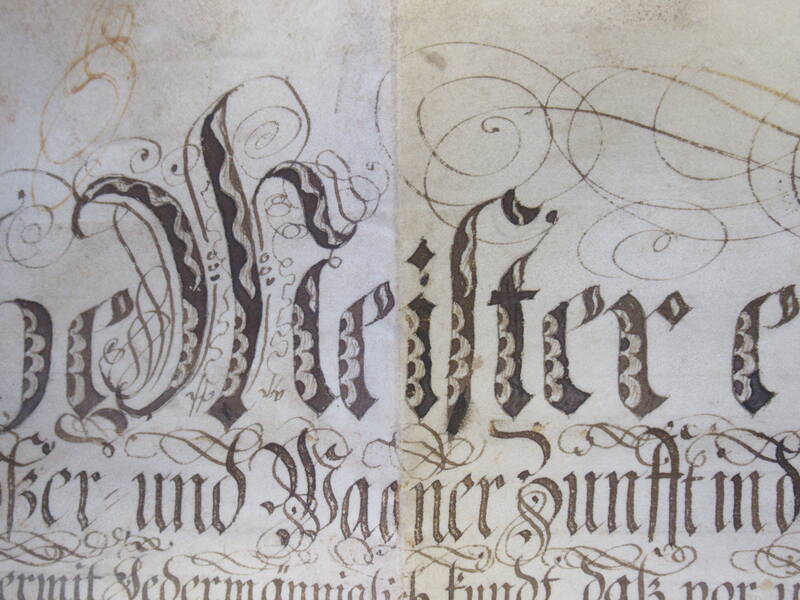 Meister
und Wagner Zunfft in d
Jedermänniglich kundt, daß vor